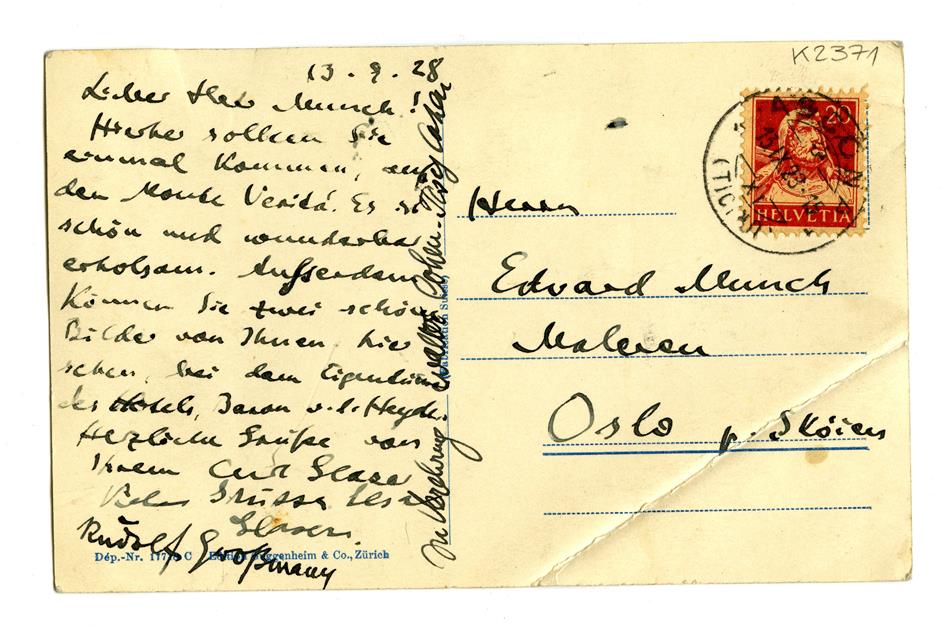 K2371
13.9.28
Lieber Herr Munch!
Hierher sollten Sie
einmal kommen, auf
den Monte Verità. Es ist
schön und wunderbar
erholsam. Ausserdem
können Sie zwei schöne
Bilder von Ihnen hier
sehen, bei dem Eigentümer
des Hotels, Baron v. d. Heydt.
Herzliche Grüße von
Ihrem Curt Glaser
Viele Grüsse Elsa
Glaser.
Rudolf Großmann
In Verehrung Walter
Dép.-Nr. C Edition Guggenheim & Co., Zürich
HELVETIA
20
ASCONA
(TICINO)
Herrn
Edvard Munch
Maleren
Oslo p. Skøien